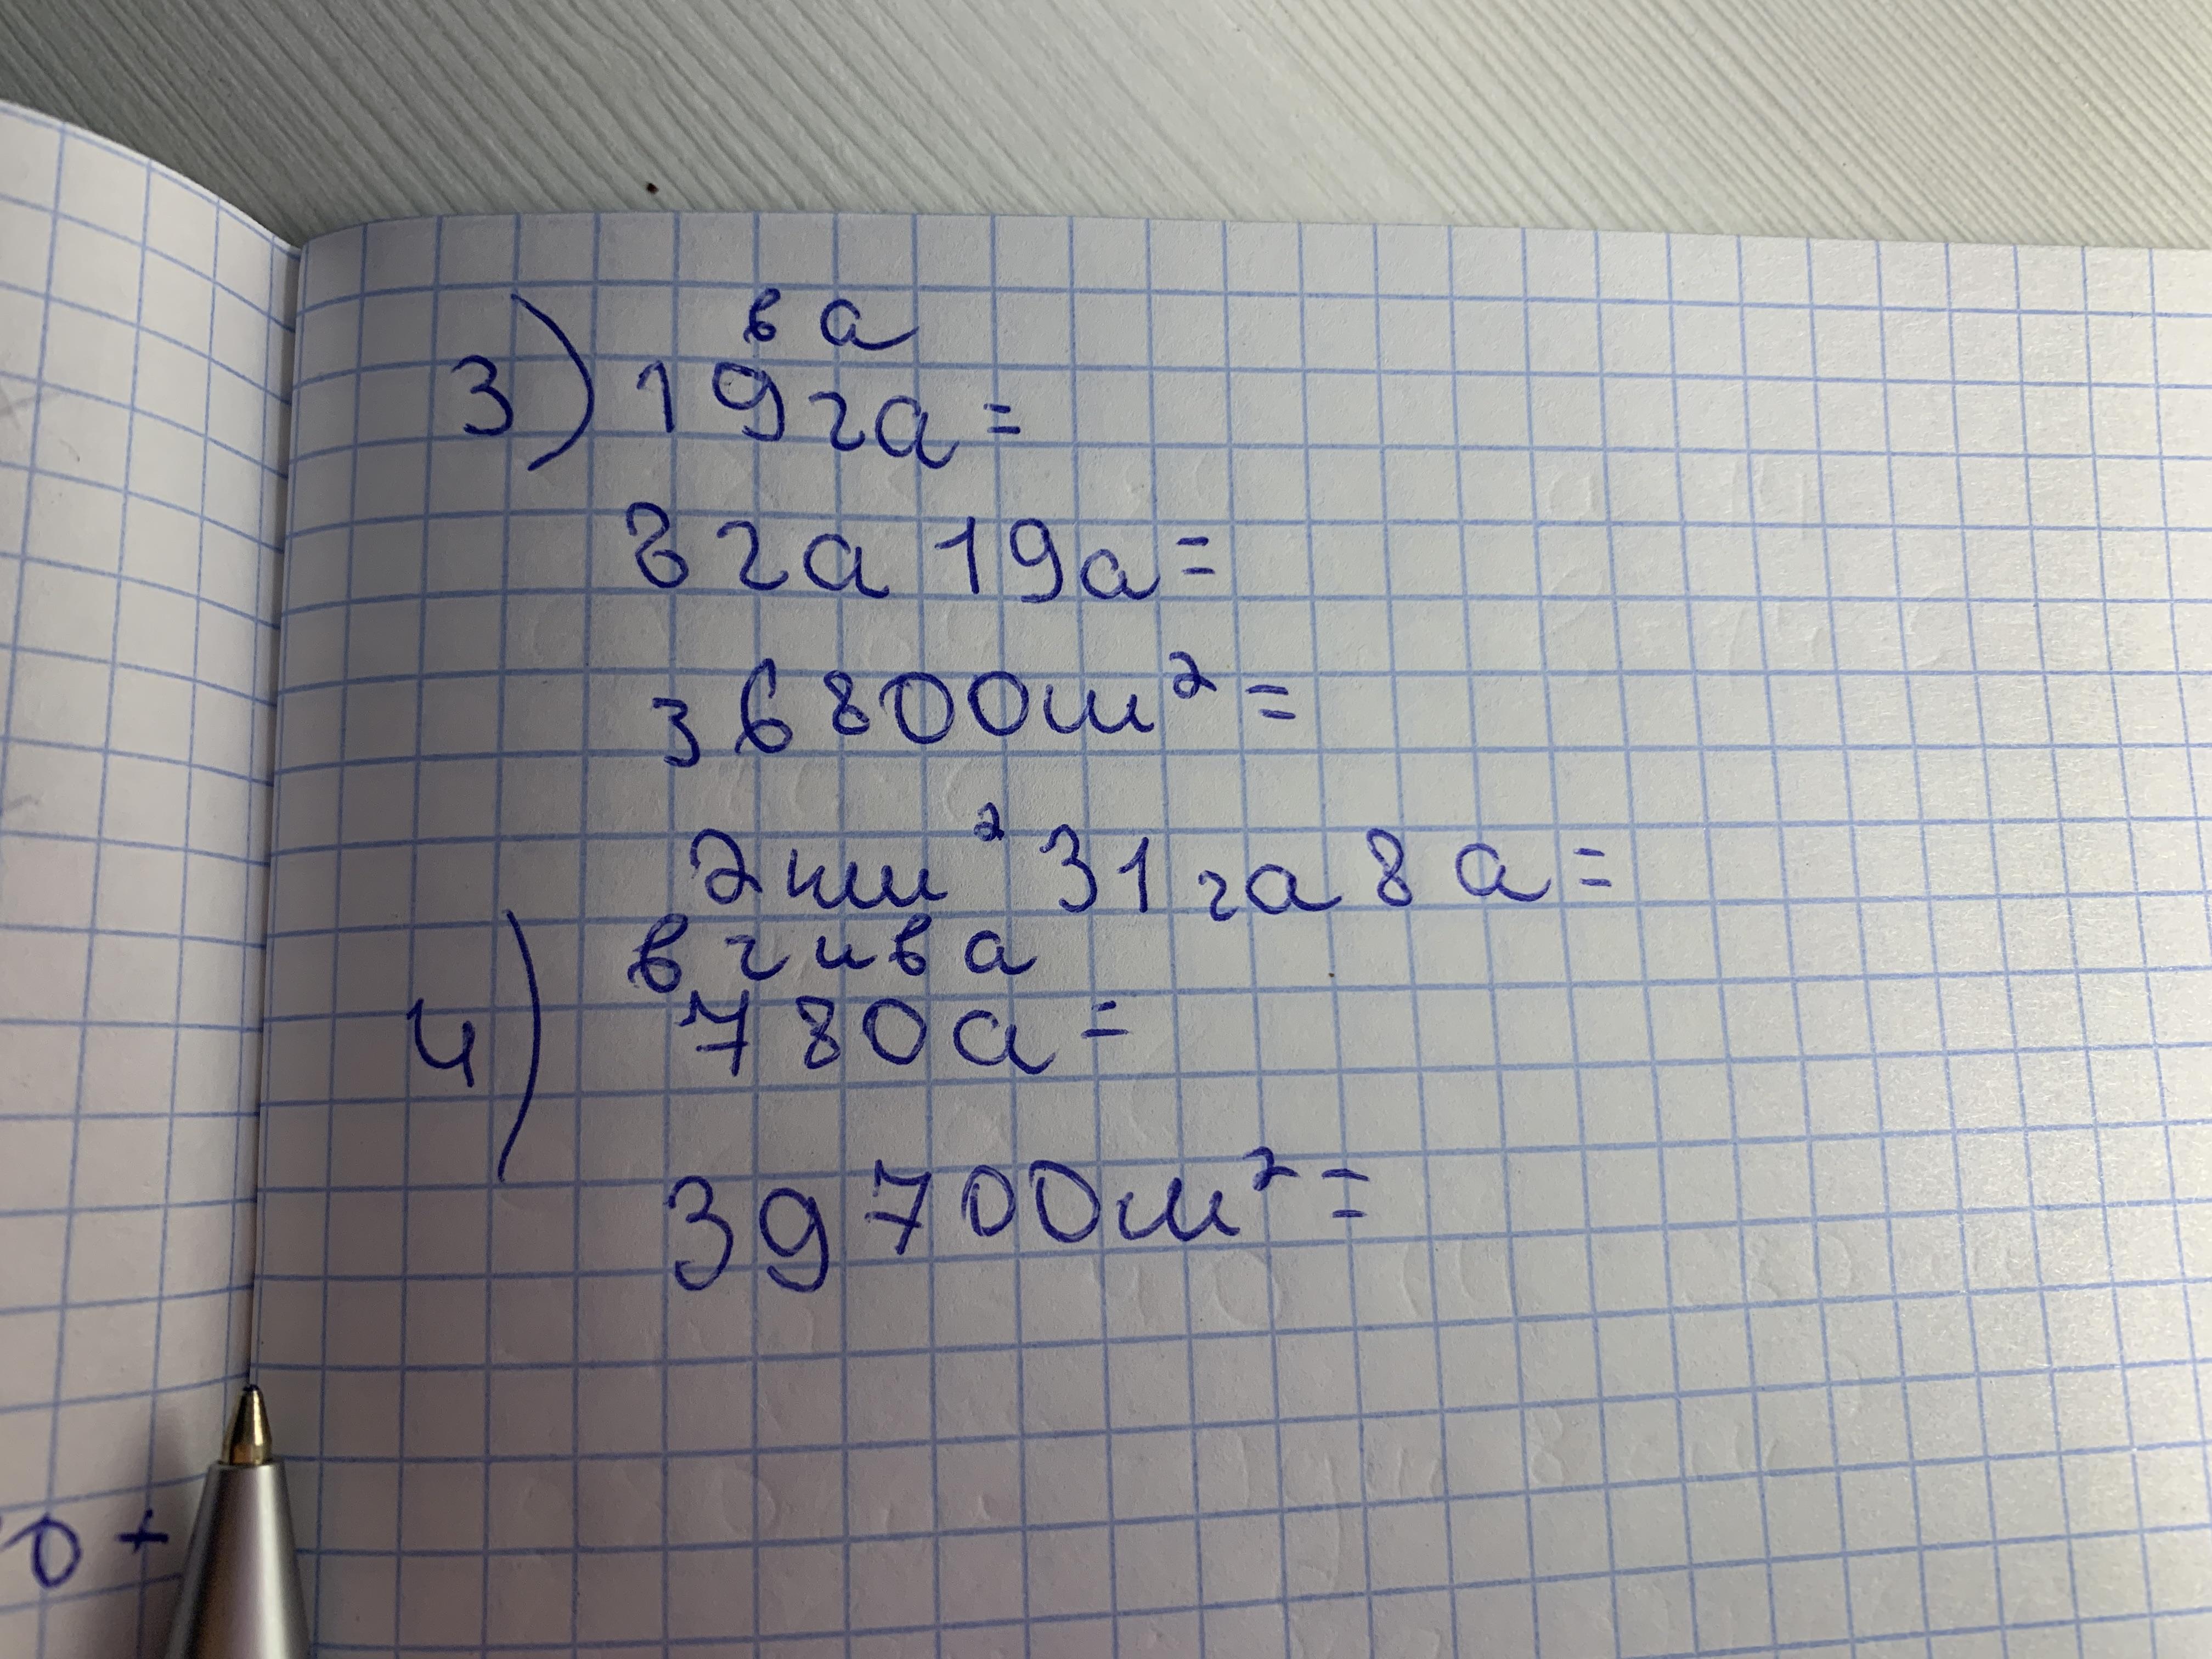 в а
3) 19га=
8га 19а=
36800м²=
2км² 31га 8а=
в г и в а
4) 780а=
39700м²=
0+